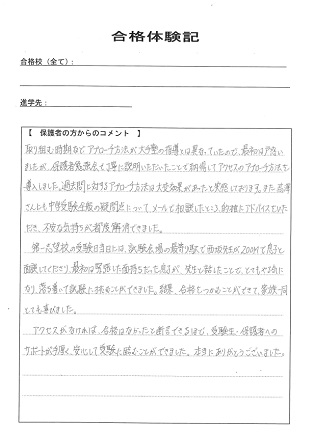 合格体験記
合格校（全て）：
進学先：
【 保護者の方からのコメント 】
取り組む時期など アプローチ方法が大手塾の指導とは異なっていたので、最初は戸惑い
ましたが、保護者懇談会で丁寧に説明いただいたことで納得してアクセスのアプローチ方法を
導入しました。過去問に対するアプローチ方法は大変効果があったと実感しております。また
さんにも中学受験全般の疑問点について、メールで相談したところ、的確なアドバイスをいた
だき、不安な気持ちが都度解消できました。
第一志望校の受験当日には、試験会場の最寄り駅で先生がZOOMで息子と
面談してくださり、最初は緊張した面持ちだった息子が、先生と話したことで、とても
なり、落ち着いて試験に挑むことができました。結果、合格をつかむことができて、家族一同
とても喜びました。
アクセスがなければ、合格はなかったと断言できるほど、受験生・保護者への
サポートが手厚く、安心して受験に臨むことができました。本当にありがとうございました。